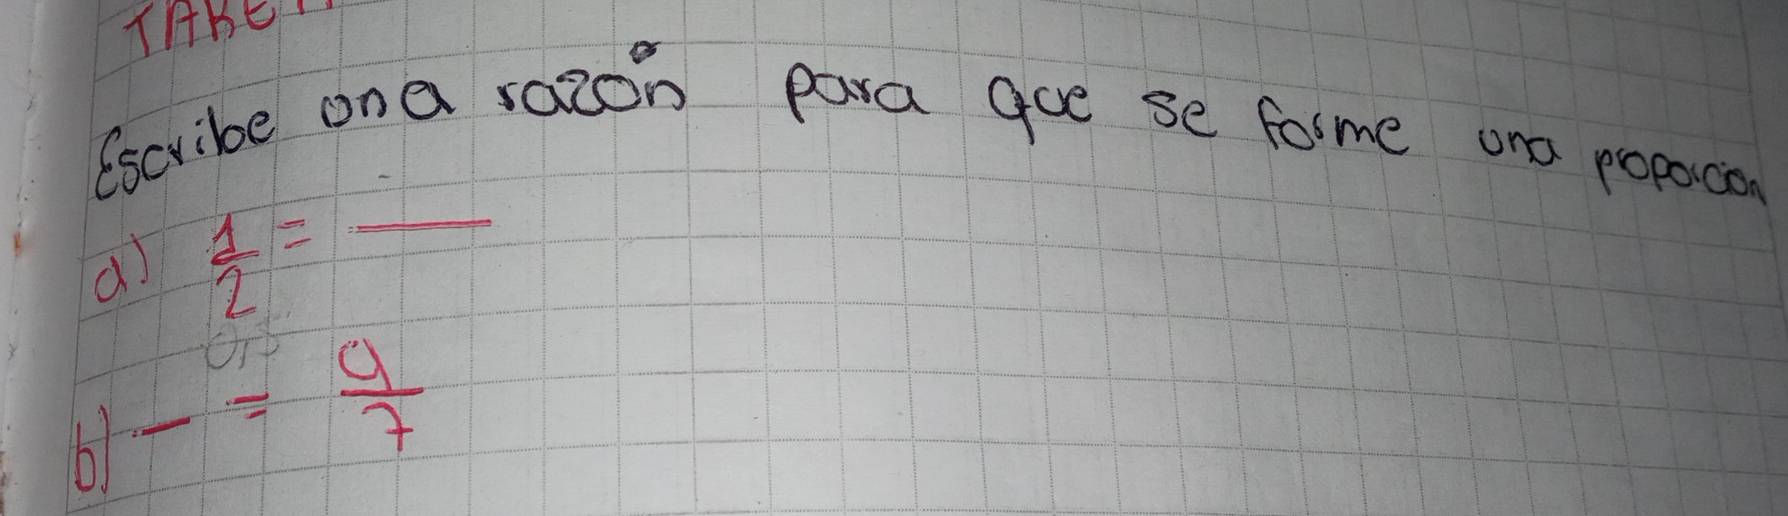 TARE
Escribe una razón para que se forme una proporcion
a) 1/2 = —
0,5
b) — = 9/7